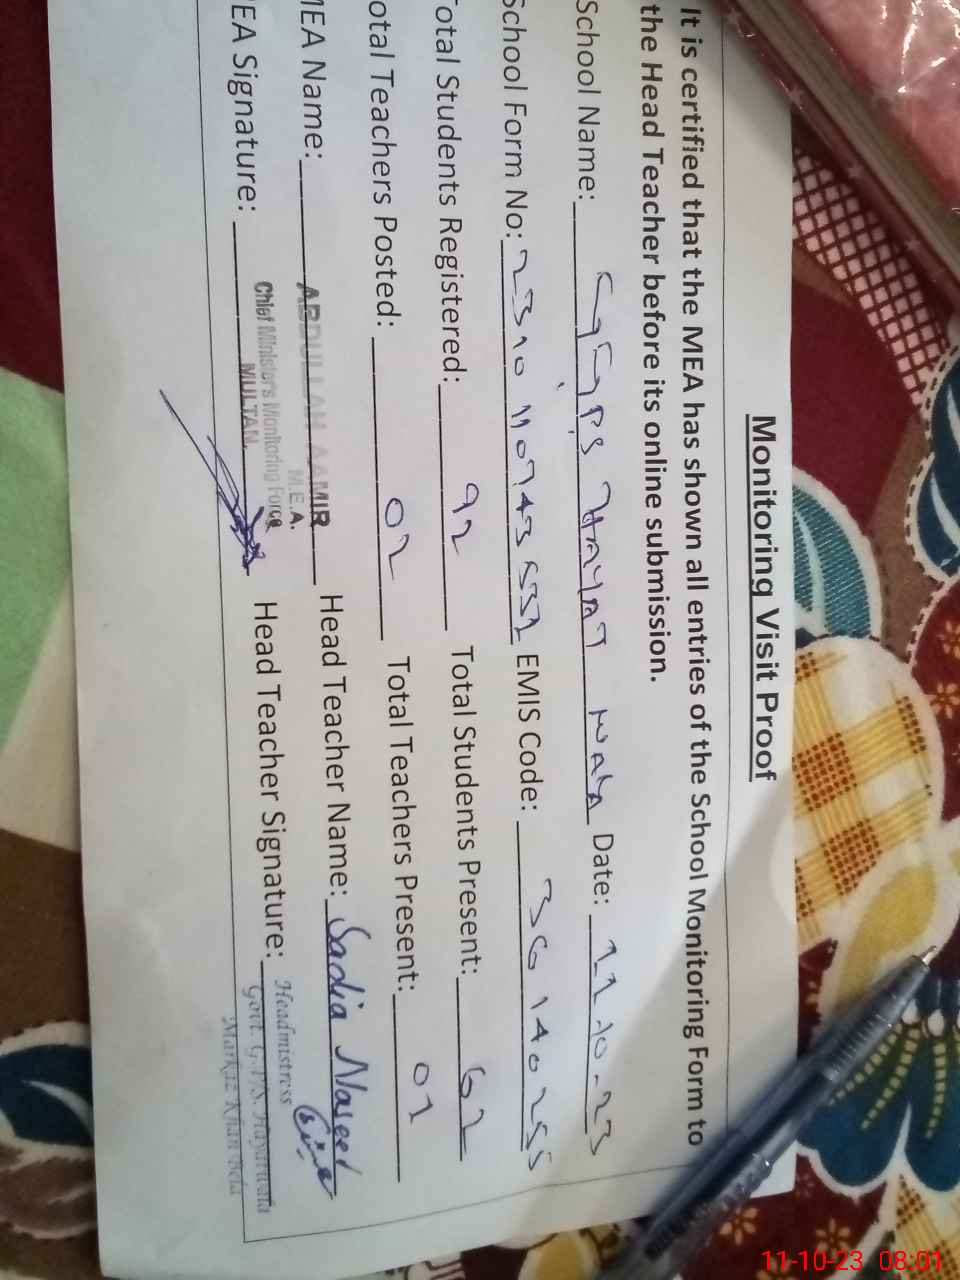 Monitoring Visit Proof
It is certified that the MEA has shown all entries of the School Monitoring Form to
the Head Teacher before its online submission.
School Name: GGPS Hayat wala Date: 11-10-23
School Form No: 231011074355 EMIS Code: 36140255
Total Students Registered: 92 Total Students Present: 62
otal Teachers Posted: 02 Total Teachers Present: 01
MEA Name: ABDULLAH AAMIR Head Teacher Name: Sadia Naseer
M.E.A.
Chief Minister's Monitoring Force
MULTAN.
EA Signature: Head Teacher Signature:
Headmistress
Govt. G.P/S. Hayatwala
Markaz Khan Bela
11-10-23 08:01